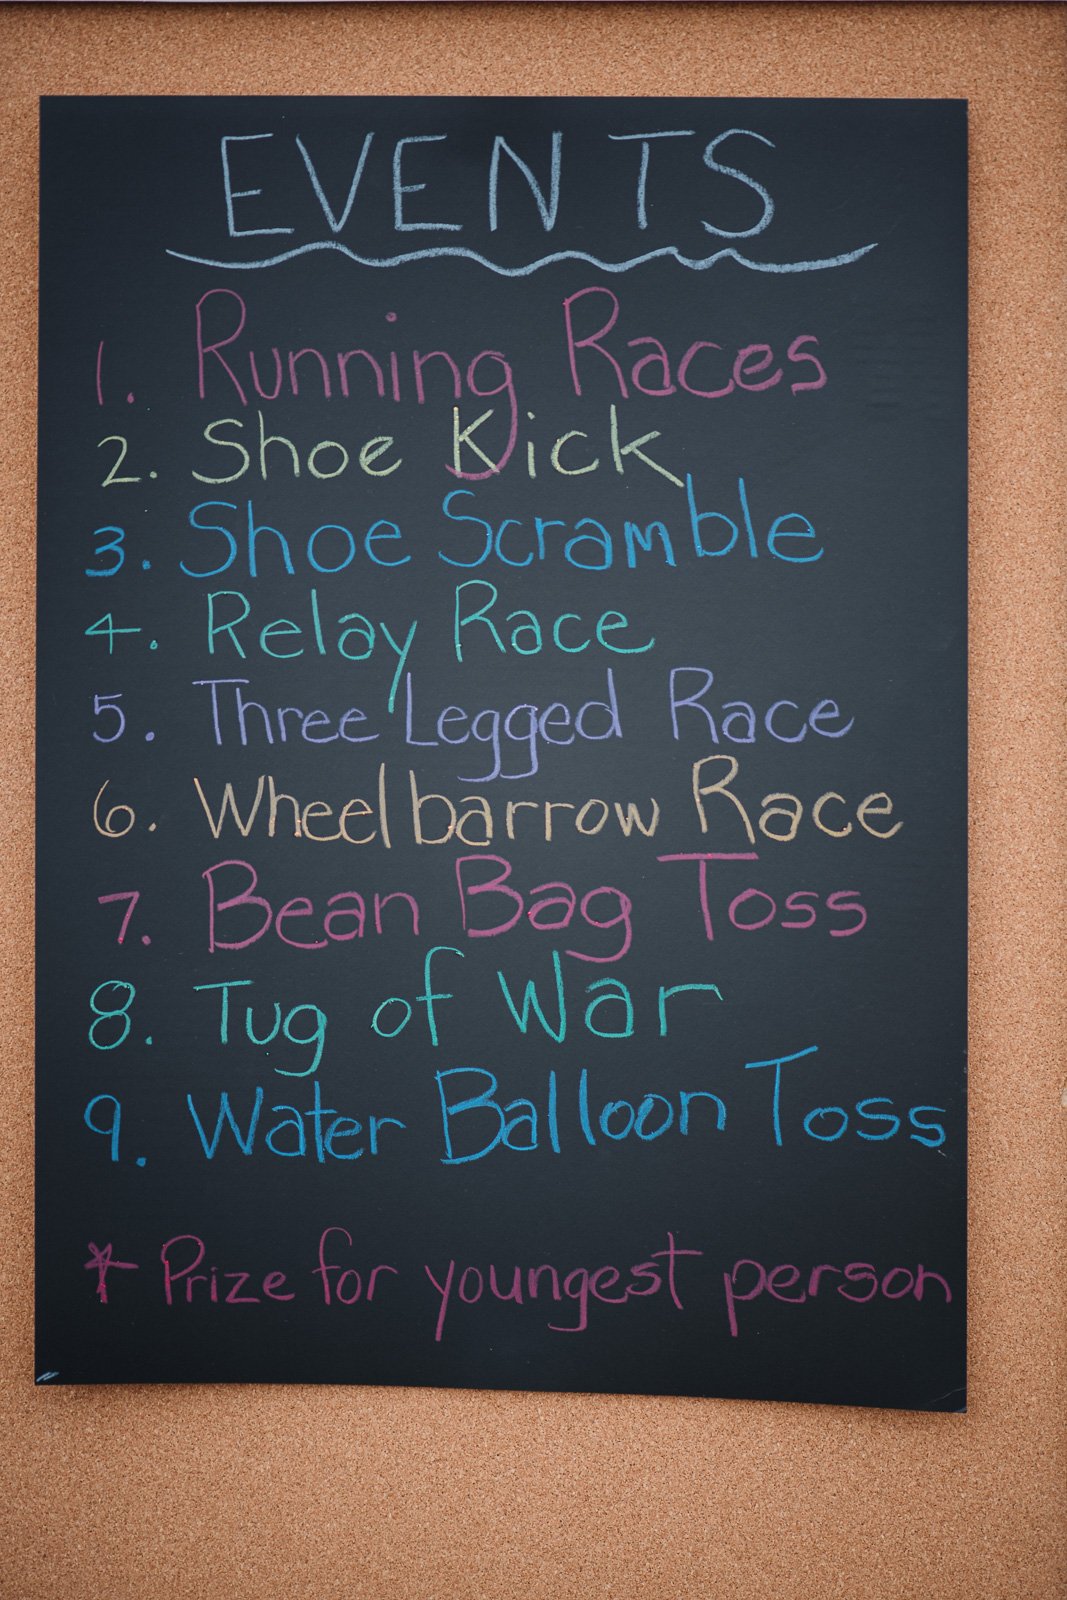 EVENTS
1. Running Races
2. Shoe Kick
3. Shoe Scramble
4. Relay Race
5. Three Legged Race
6. Wheelbarrow Race
7. Bean Bag Toss
8. Tug of War
9. Water Balloon Toss
* Prize for youngest person